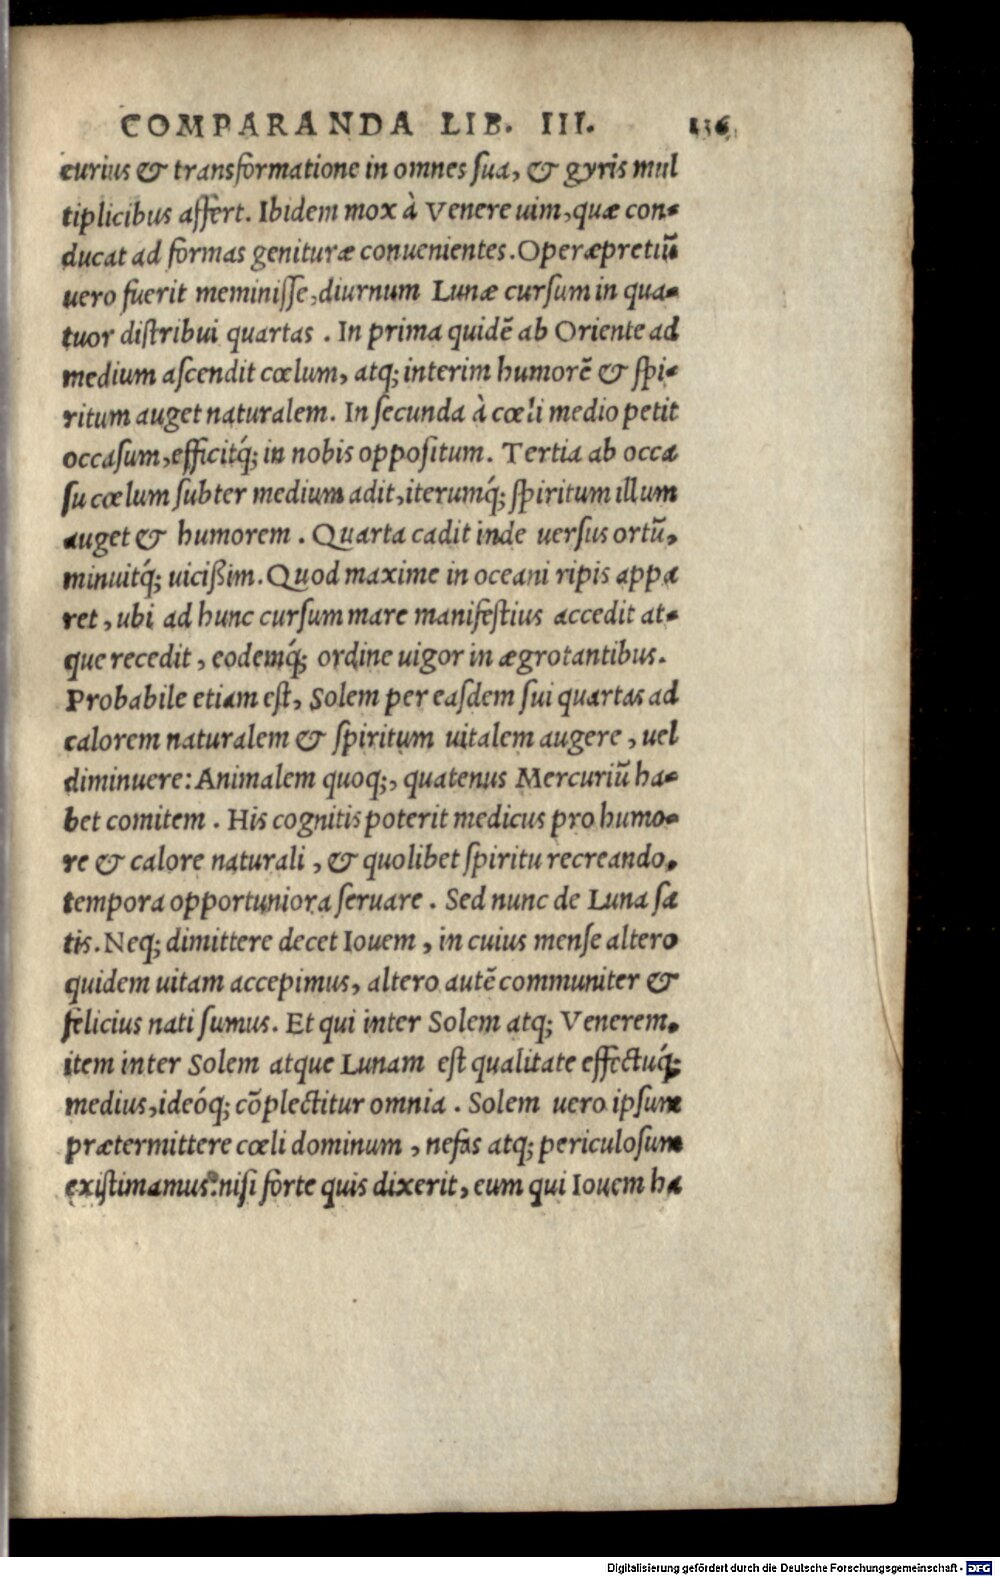 COMPARANDA LIB. III. 136
curius & transformatione in omnes sua, & gyris mul
tiplicibus affert. Ibidem mox à Venere uim, quæ con-
ducat ad formas genituræ conuenientes. Operæpretiũ
uero fuerit meminisse, diurnum Lunæ cursum in qua-
tuor distribui quartas. In prima quidẽ ab Oriente ad
medium ascendit cœlum, atq; interim humorẽ & spi-
ritum auget naturalem. In secunda à cœli medio petit
occasum, efficitq́; in nobis oppositum. Tertia ab occa
su cœlum subter medium adit, iterumq́; spiritum illum
auget & humorem. Quarta cadit inde uersus ortũ,
minuitq́; uicißim. Quod maxime in oceani ripis appa
ret, ubi ad hunc cursum mare manifestius accedit at-
que recedit, eodemq́; ordine uigor in ægrotantibus.
Probabile etiam est, Solem per easdem sui quartas ad
calorem naturalem & spiritum uitalem augere, uel
diminuere: Animalem quoq;, quatenus Mercuriũ ha-
bet comitem. His cognitis poterit medicus pro humo-
re & calore naturali, & quolibet spiritu recreando,
tempora opportuniora seruare. Sed nunc de Luna sa
tis. Neq; dimittere decet Iouem, in cuius mense altero
quidem uitam accepimus, altero autẽ communiter &
felicius nati sumus. Et qui inter Solem atq; Venerem,
item inter Solem atque Lunam est qualitate effectuq́;
medius, ideóq; cõplectitur omnia. Solem uero ipsum
prætermittere cœli dominum, nefas atq; periculosum
existimamus: nisi forte quis dixerit, eum qui Iouem ha
Digitalisierung gefördert durch die Deutsche Forschungsgemeinschaft - DFG